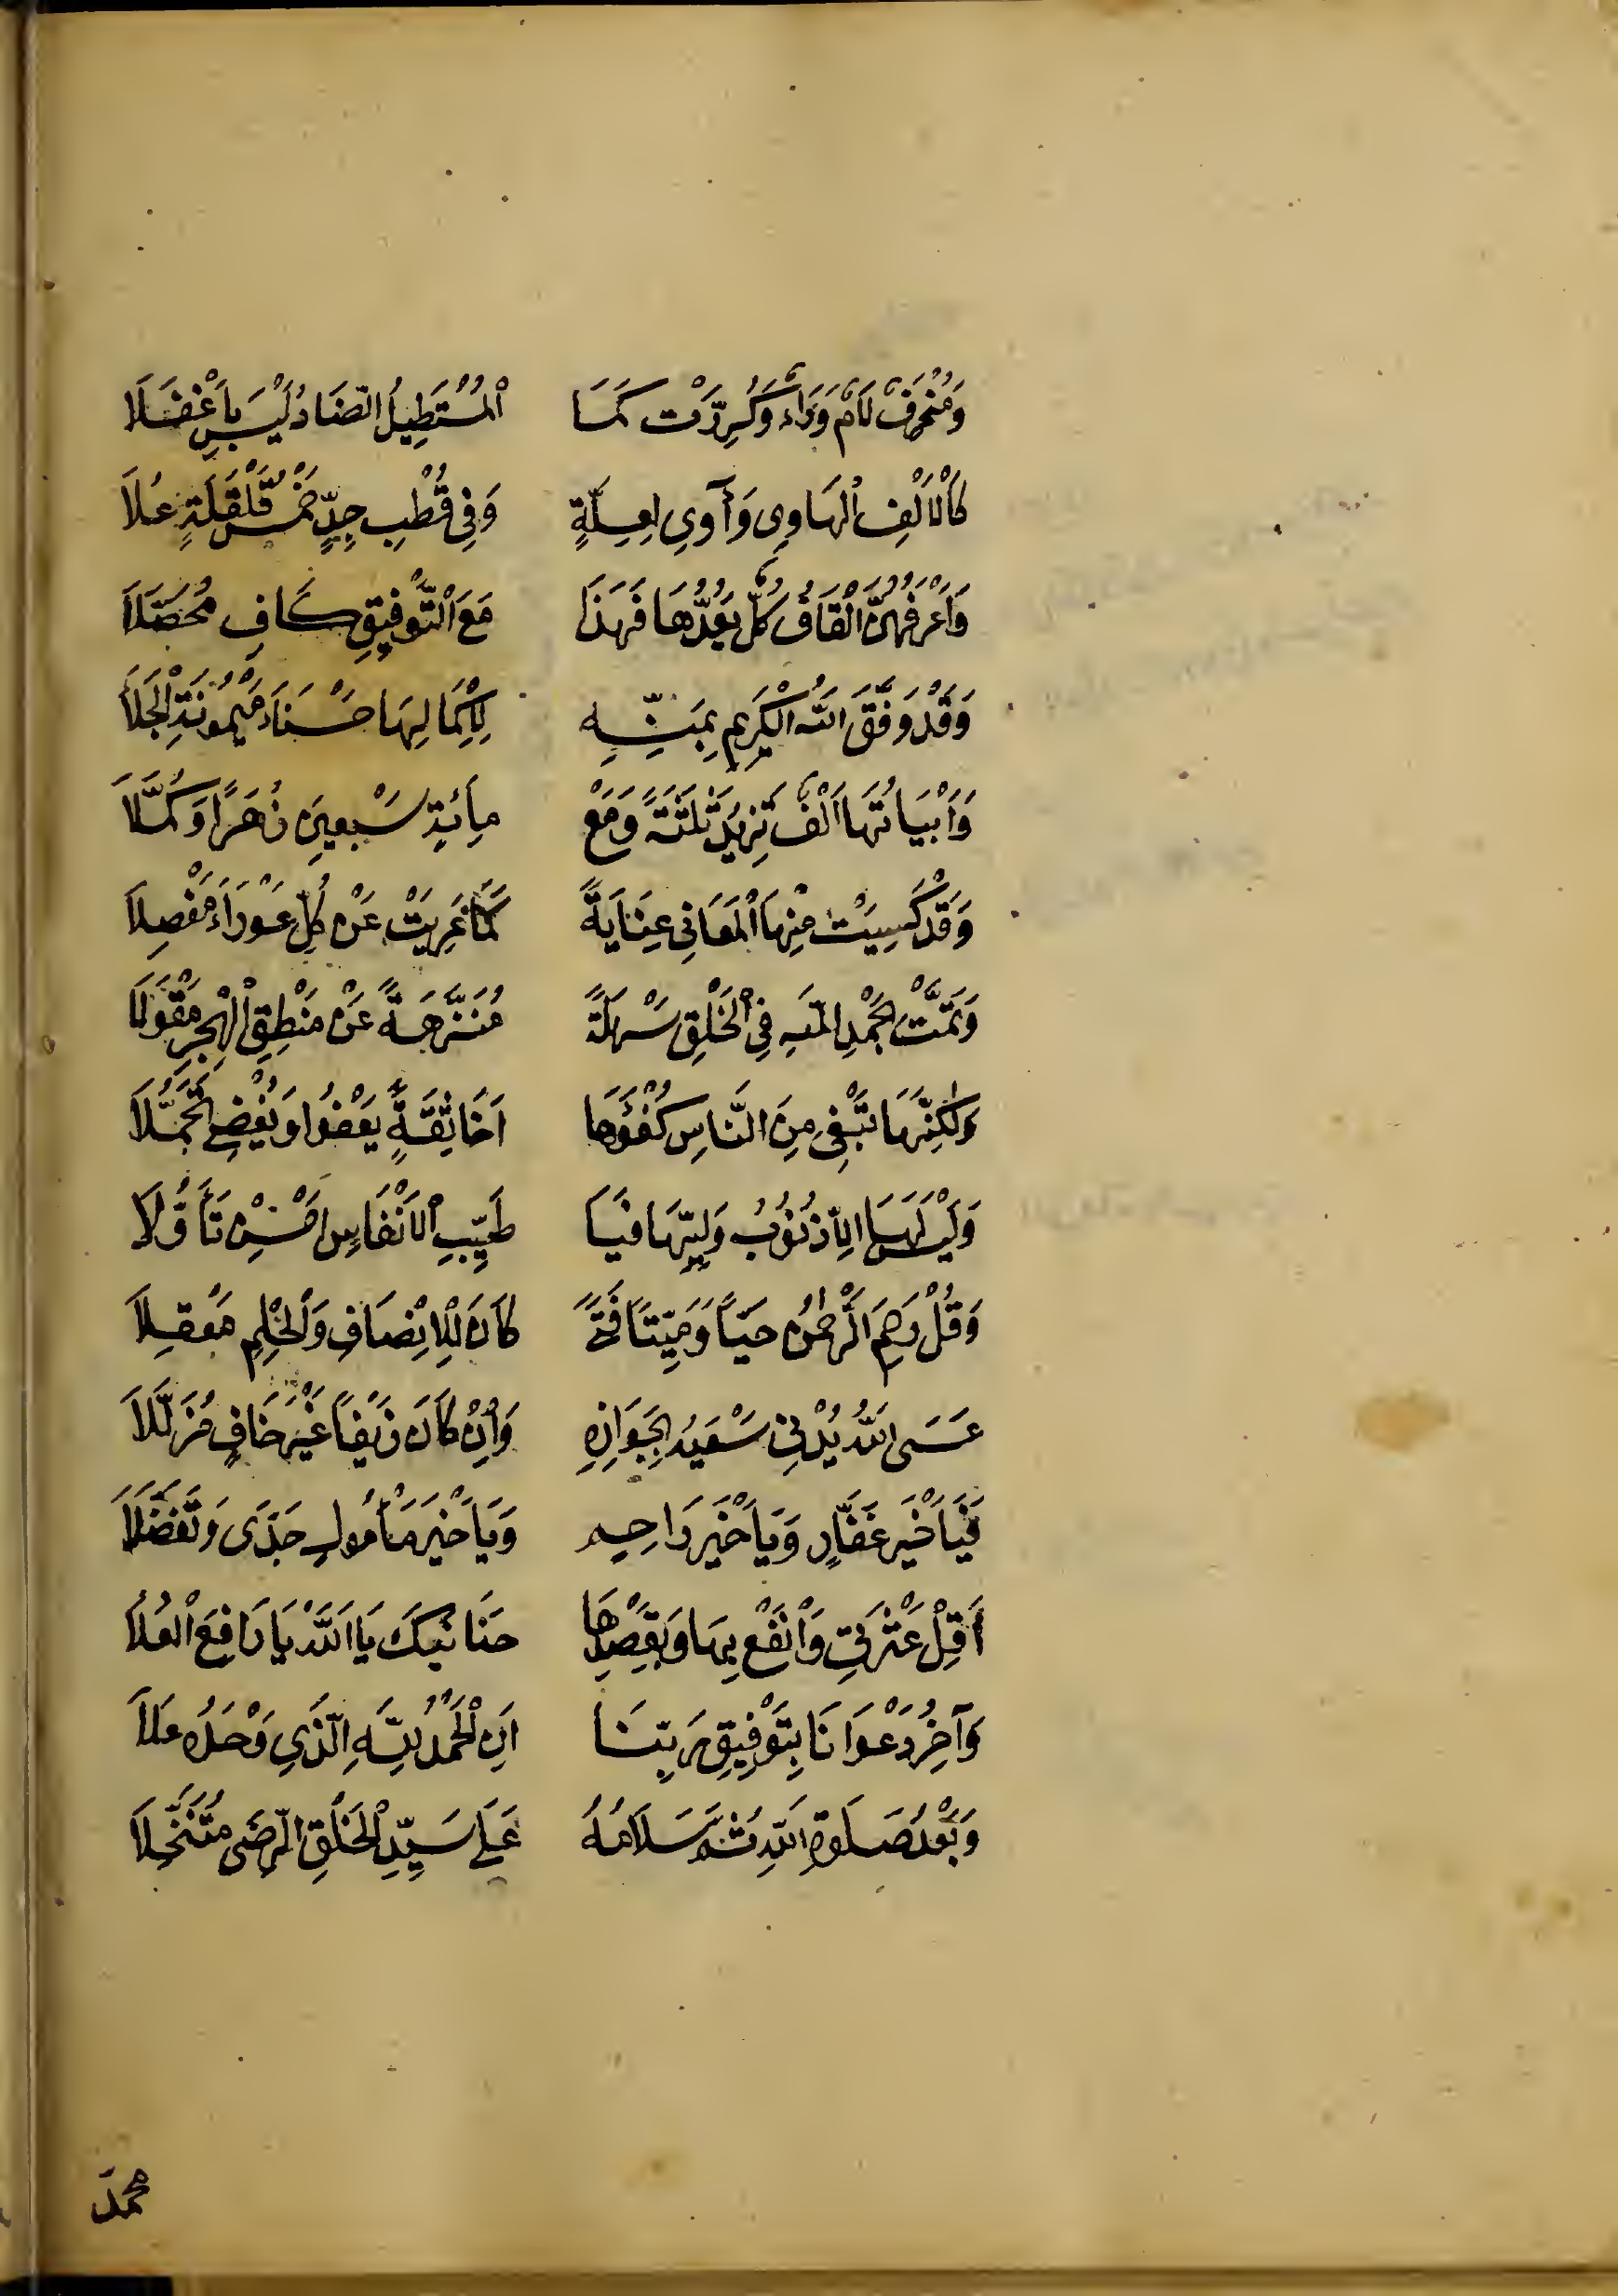 وَمُنْحَرِفٌ لَامٌ وَرَاءٌ وَكُرِّرَتْ كَمَا الْمُسْتَطِيلُ الضَادُ لَيْسَ بِأَغْفَلَا
كَالْاَلْفِ الْهَاوِى وَآوِى لِعِلَّةٍ وَفِى قُطْبِ جِدٍّ خَمْسُ قَلْقَلَةٍ عُلَا
وَاَعْرَفُهُنَّ الْقَافُ كُلٌّ يَعُدُّهَا فَهَذَا مَعَ التَّوْفِيقِ كَافٍ مُحَصَّلَا
وَقَدْ وَفَّقَ اللّٰهُ الْكَرِيمُ بِمَنِّهِ لِاِكْمَالِهَا حَسْنَاءَ مَيْمُونَةِ الْجَلَا
وَاَبْيَاتُهَا اَلْفٌ تَزِيدُ ثَلٰثَةً وَمَعْ مِأَئَةٍ سَبْعِينَ زُهَرًا وَكُمَّلَا
وَقَدْ كُسِيَتْ مِنْهَا الْمَعَانِى عِنَايَةً كَمَا عَرِيَتْ عَنْ كُلِّ عَوْرَاءَ مَفْصِلَا
وَتَمَّتْ بِحَمْدِ اللّٰهِ فِى الْخَلْقِ سَهْلَةً مُنَزَّهَةً عَنْ مَنْطِقِ الْهِجْرِ مِقْوَلَا
وَلٰكِنَّهَا تَبْغِى مِنَ النَّاسِ كُفْؤَهَا اَخَا ثِقَةٍ يَعْفُوا وَيُغْضِى تَجَمُّلَا
وَلَيْسَ لَهَا اِلَّا ذُنُوبُ وَلِيِّهَا فَيَا طَيِّبِ الْاَنْفَاسِ اَحْسِنْ تَأَوُّلَا
وَقُلْ رَحِمَ الرَّحْمٰنُ حَيًّا وَمَيِّتًا فَتًى كَانَ لِلْاِنْصَافِ وَالْحِلْمِ مَعْقِلَا
عَسَى اللّٰهُ يُدْنِى سَعْيَهُ بِجَوَازِهِ وَاِنْ كَانَ زَيْفًا غَيْرَ خَافٍ مُزَلَّلَا
فَيَا خَيْرَ غَفَّارٍ وَيَا خَيْرَ رَاحِمٍ وَيَا خَيْرَ مَأْمُولٍ جَدًى وَتَفَضُّلَا
أَقِلْ عَثْرَتِى وَانْفَعْ بِهَا وَبِقَصْدِهَا حَنَانَيْكَ يَا اَللّٰهُ يَا رَافِعَ الْعُلَا
وَآخِرُ دَعْوَانَا بِتَوْفِيقِ رَبِّنَا اَنِ الْحَمْدُ لِلّٰهِ الَّذِى وَحْدَهُ عَلَا
وَبَعْدُ صَلٰوةُ اللّٰهِ ثُمَّ سَلَامُهُ عَلَى سَيِّدِ الْخَلْقِ الرِّضَى مُتَنَخِّلَا
محمد